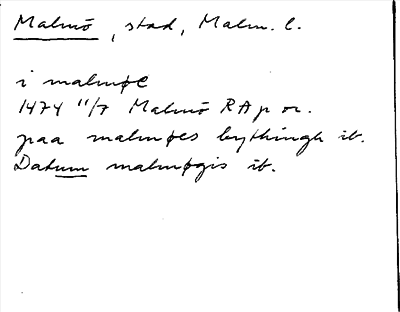 Malmö, stad, Malm. l.
i malmøe
1474 11/7 Malmö RAp or.
paa malmøes bythingh ib.
Datum malmøgis ib.